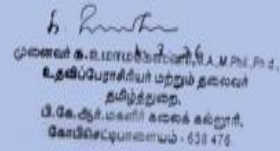 முனைவர் க.உமாமகேஸ்வரி, M.A.,M.Phil.,Ph.d.,
உதவிப்பேராசிரியர் மற்றும் தலைவர்
தமிழ்த்துறை,
பி.கே.ஆர்.மகளிர் கலைக் கல்லூரி,
கோபிசெட்டிபாளையம் - 638 476.